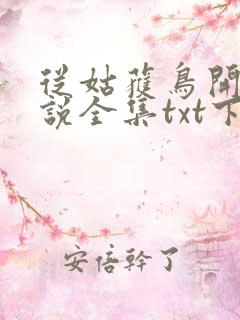 從姑蒦鳥開
說全集txt下
安倍幹了